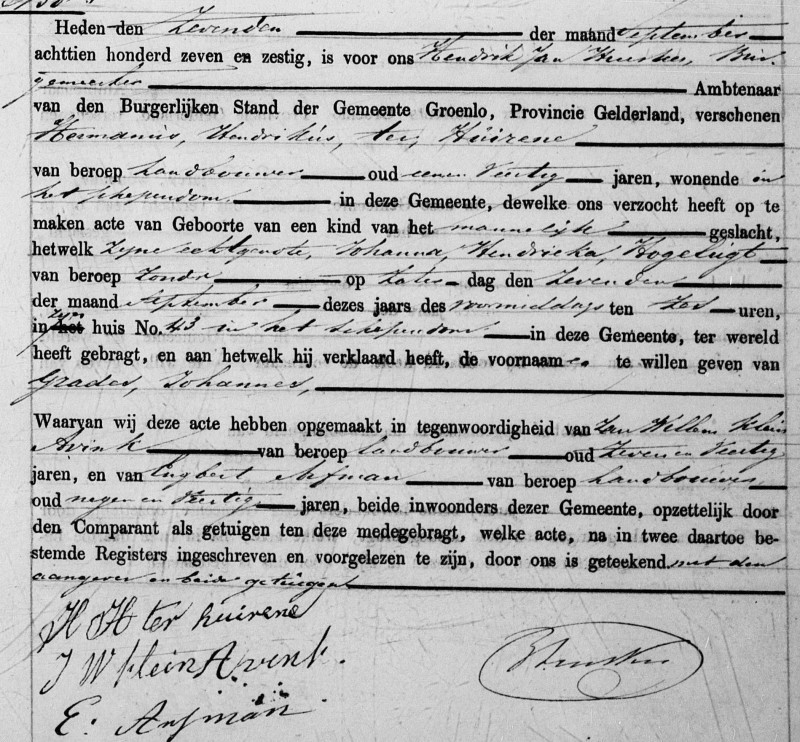 Heden den Zevenden der maand September
achttien honderd zeven en zestig, is voor ons Hendrik Jan Huskes, Bur-
gemeester Ambtenaar
van den Burgerlijken Stand der Gemeente Groenlo, Provincie Gelderland, verschenen
Hermanus, Hendrikus, ter, Huirene
van beroep Landbouwer oud eenen Veertig jaren, wonende in
het schependom in deze Gemeente, dewelke ons verzocht heeft op te
maken acte van Geboorte van een kind van het mannelijke geslacht,
hetwelk zyne echtgenote, Johanna, Hendrieka, Hogeligt
van beroep Zonder op Zater dag den Zevenden
der maand September dezes jaars des voormiddags ten Zes uren,
in zyn het huis No. 43 in het schependom in deze Gemeente, ter wereld
heeft gebragt, en aan hetwelk hij verklaard heeft, de voornaam en te willen geven van
Grades, Johannes,
Waarvan wij deze acte hebben opgemaakt in tegenwoordigheid van Jan Willem Klein
Avink van beroep Landbouwer oud Zeven en Veertig
jaren, en van Engbert van beroep Landbouwer
oud negen en Veertig jaren, beide inwoonders dezer Gemeente, opzettelijk door
den Comparant als getuigen ten deze medegebragt, welke acte, na in twee daartoe be-
stemde Registers ingeschreven en voorgelezen te zijn, door ons is geteekend met den
aangever en beide getuigen
H H ter huirene
J W klein Avink.
E.